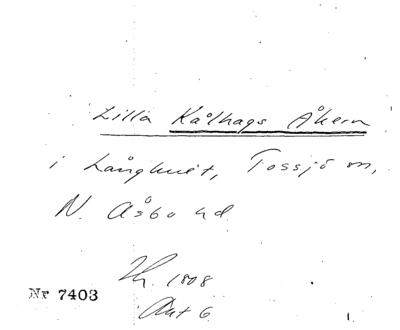 Lilla Kålhags Åkern
i Långhult, Tossjö sn,
N. Åsbo hd
1808
Akt 6
Nr 7403